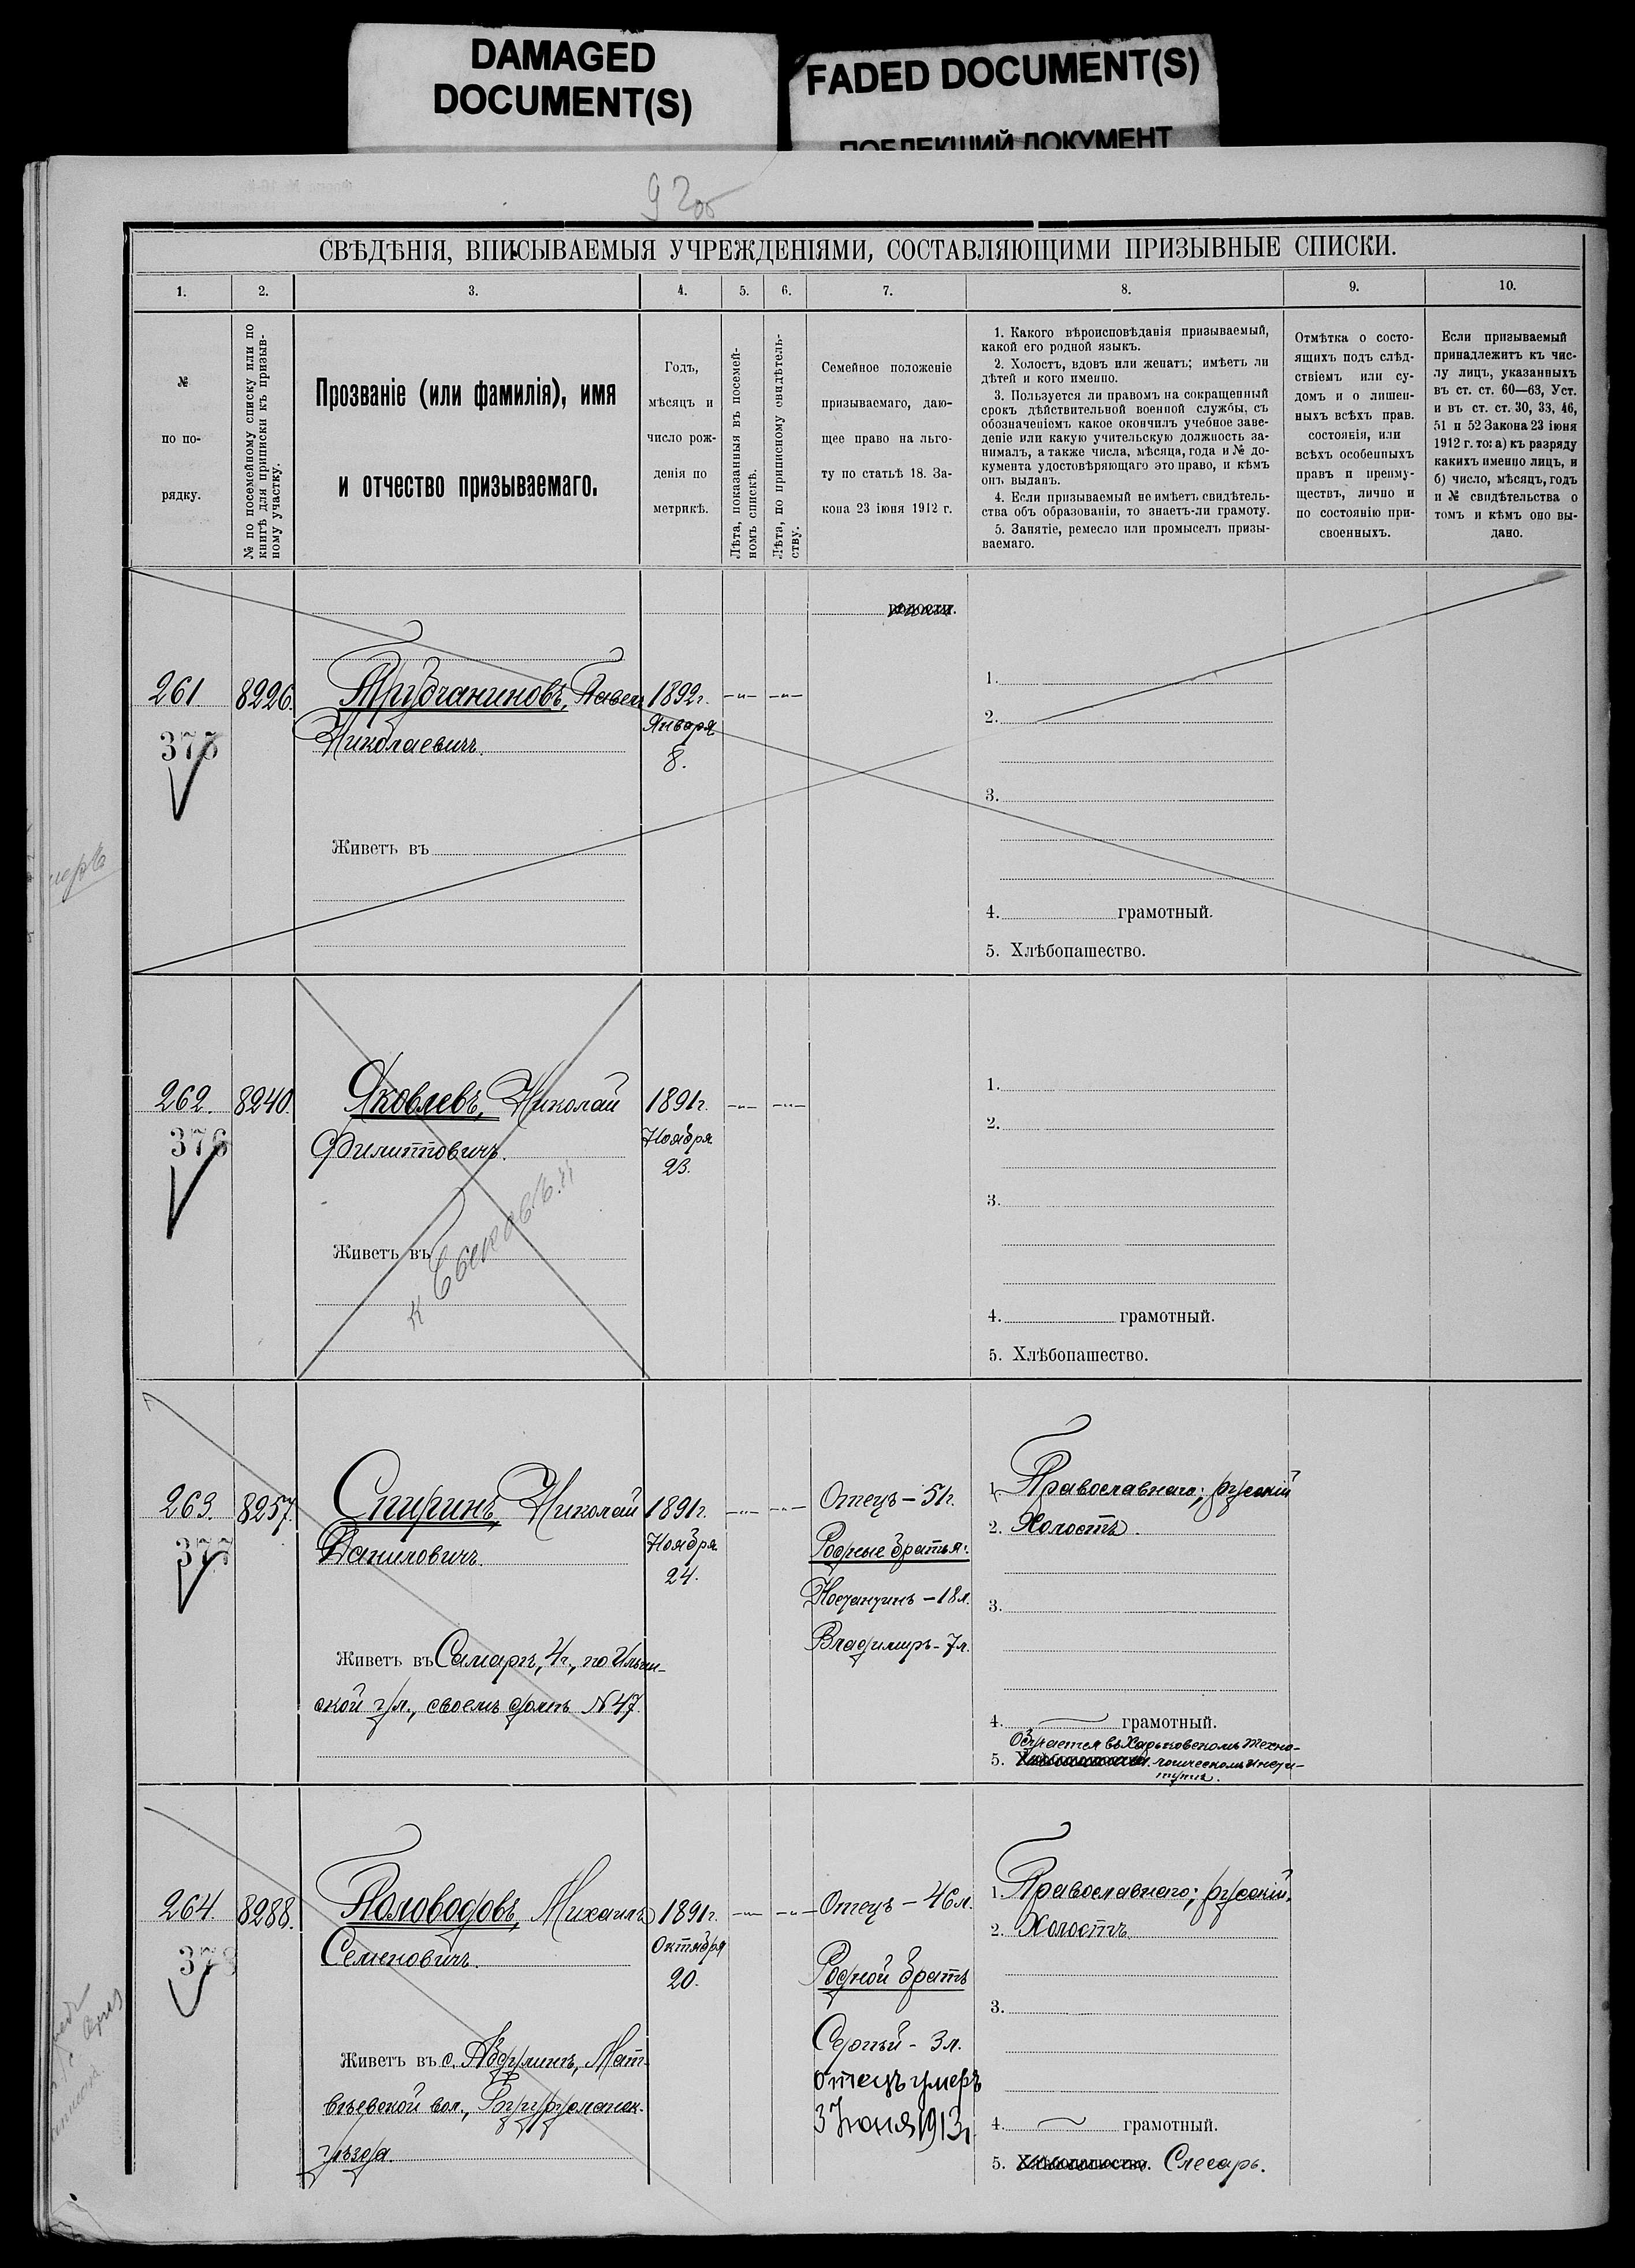 DAMAGED
DOCUMENT(S)
FADED DOCUMENT(S)
ПОБЛЕКШИЙ ДОКУМЕНТ
92об
СВѢДѢНІЯ, ВПИСЫВАЕМЫЯ УЧРЕЖДЕНІЯМИ, СОСТАВЛЯЮЩИМИ ПРИЗЫВНЫЕ СПИСКИ.
1. 2. 3. 4. 5. 6. 7. 8. 9. 10.
№
по по-
рядку.
№ по посемейному списку или по
книгѣ для приписки къ призыв-
ному участку.
Прозваніе (или фамилія), имя
и отчество призываемаго.
Годъ,
мѣсяцъ и
число рож-
денія по
метрикѣ.
Лѣта, показанныя въ посемей-
номъ спискѣ.
Лѣта, по приписному свидѣтель-
ству.
Семейное положеніе
призываемаго, даю-
щее право на льго-
ту по статьѣ 18. За-
кона 23 іюня 1912 г.
1. Какого вѣроисповѣданія призываемый,
какой его родной языкъ.
2. Холостъ, вдовъ или женатъ; имѣетъ ли
дѣтей и кого именно.
3. Пользуется ли правомъ на сокращенный
срокъ дѣйствительной военной службы, съ
обозначеніемъ какое окончилъ учебное заве-
деніе или какую учительскую должность за-
нималъ, а также числа, мѣсяца, года и № до-
кумента удостовѣряющаго это право, и кѣмъ
онъ выданъ.
4. Если призываемый не имѣетъ свидѣтель-
ства объ образованіи, то знаетъ-ли грамоту.
5. Занятіе, ремесло или промыселъ призы-
ваемаго.
Отмѣтка о состо-
ящихъ подъ слѣд-
ствіемъ или су-
домъ и о лишен-
ныхъ всѣхъ прав.
состоянія, или
всѣхъ особенныхъ
правъ и преиму-
ществъ, лично и
по состоянію при-
своенныхъ.
Если призываемый
принадлежитъ къ чис-
лу лицъ, указанныхъ
въ ст. ст. 60—63, Уст.
и въ ст. ст. 30, 33, 46,
51 и 52 Закона 23 іюня
1912 г. то: а) къ разряду
какихъ именно лицъ, и
б) число, мѣсяцъ, годъ
и № свидѣтельства о
томъ и кѣмъ оно вы-
дано.
волости.
261. 8226. Трубчаниновъ, Павелъ 1892г. -"- -"- 1.
Января
375 Николаевичъ. 8. 2.
3.
Живетъ въ
4. грамотный.
5. Хлѣбопашество.
262. 8240. Яковлевъ, Николай 1891г. -"- -"- 1.
376 Филипповичъ. Ноября 2.
23.
3.
Живетъ въ
4. грамотный.
5. Хлѣбопашество.
263. 8257. Спиринъ, Николай 1891г. -"- -"- Отецъ - 51г. 1. Православнаго; русскій
377 Даниловичъ. Ноября Родные братья: 2. Холостъ.
24.
Костантинъ - 18л. 3.
Владимиръ - 7л.
Живетъ въ Самарѣ, 4ч., по Ильин-
ской ул., своемъ домѣ N 47.
4. грамотный.
Обучается въ Харьковскомъ техно-
5. Хлѣбопашество. логическомъ инсти-
тутѣ.
264. 8288. Половодовъ, Михаилъ 1891г. -"- -"- Отецъ - 46л. 1. Православнаго; русскій.
378 Семеновичъ. Октября 2. Холостъ
20. Родной братъ
3.
Сергѣй - 3л.
Живетъ въ с. Абдулинѣ, Мат-
отецъ умеръ
вѣевской вол., Бугурусланск.
3 Іюня 1913г. 4. грамотный.
уѣзда. 5. Хлѣбопашество. Слесарь.